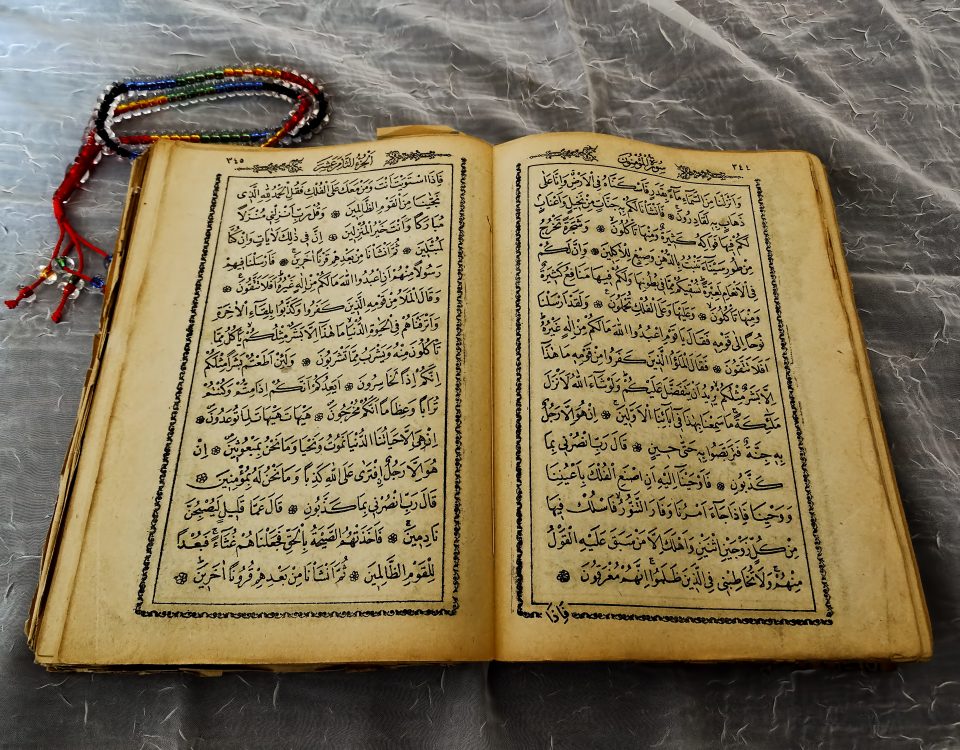 سُورَةُ الْمُؤْمِنُونَ ٣٤٤
وَاَنْزَلْنَا مِنَ السَّمَاءِ مَاءً بِقَدَرٍ فَاَسْكَنَّاهُ فِي الْاَرْضِ وَاِنَّا عَلٰى
ذَهَابٍ بِهِ لَقَادِرُونَ ۞ فَاَنْشَأْنَا لَكُمْ بِهِ جَنَّاتٍ مِنْ نَخِيلٍ وَاَعْنَابٍ
لَكُمْ فِيهَا فَوَاكِهُ كَثِيرَةٌ وَمِنْهَا تَأْكُلُونَ ۞ وَشَجَرَةً تَخْرُجُ
مِنْ طُورِ سَيْنَاءَ تَنْبُتُ بِالدُّهْنِ وَصِبْغٍ لِلْاٰكِلِينَ ۞ وَاِنَّ لَكُمْ
فِي الْاَنْعَامِ لَعِبْرَةً نُسْقِيكُمْ مِمَّا فِي بُطُونِهَا وَلَكُمْ فِيهَا مَنَافِعُ كَثِيرَةٌ
وَمِنْهَا تَأْكُلُونَ ۞ وَعَلَيْهَا وَعَلَى الْفُلْكِ تُحْمَلُونَ ۞ وَلَقَدْ اَرْسَلْنَا
نُوحًا اِلٰى قَوْمِهِ فَقَالَ يَا قَوْمِ اعْبُدُوا اللّٰهَ مَالَكُمْ مِنْ اِلٰهٍ غَيْرُهُ
اَفَلَا تَتَّقُونَ ۞ فَقَالَ الْمَلَؤُا الَّذِينَ كَفَرُوا مِنْ قَوْمِهِ مَا هٰذَا
اِلَّا بَشَرٌ مِثْلُكُمْ يُرِيدُ اَنْ يَتَفَضَّلَ عَلَيْكُمْ وَلَوْ شَاءَ اللّٰهُ لَاَنْزَلَ
مَلٰئِكَةً مَا سَمِعْنَا بِهٰذَا فِي اٰبَائِنَا الْاَوَّلِينَ ۞ اِنْ هُوَ اِلَّا رَجُلٌ
بِهِ جِنَّةٌ فَتَرَبَّصُوا بِهِ حَتّٰى حِينٍ ۞ قَالَ رَبِّ انْصُرْنِي بِمَا
كَذَّبُونِ ۞ فَاَوْحَيْنَا اِلَيْهِ اَنِ اصْنَعِ الْفُلْكَ بِاَعْيُنِنَا
وَوَحْيِنَا فَاِذَا جَاءَ اَمْرُنَا وَفَارَ التَّنُّورُ فَاسْلُكْ فِيهَا
مِنْ كُلٍّ زَوْجَيْنِ اثْنَيْنِ وَاَهْلَكَ اِلَّا مَنْ سَبَقَ عَلَيْهِ الْقَوْلُ
مِنْهُمْ وَلَا تُخَاطِبْنِي فِي الَّذِينَ ظَلَمُوا اِنَّهُمْ مُغْرَقُونَ ۞
فَاِذَا
اَلْجُزْءُ الثَّامِنَ عَشَرَ ٣٤٥
فَاِذَا اسْتَوَيْتَ اَنْتَ وَمَنْ مَعَكَ عَلَى الْفُلْكِ فَقُلِ الْحَمْدُ لِلّٰهِ الَّذِي
نَجّٰينَا مِنَ الْقَوْمِ الظَّالِمِينَ ۞ وَقُلْ رَبِّ اَنْزِلْنِي مُنْزَلًا
مُبَارَكًا وَاَنْتَ خَيْرُ الْمُنْزِلِينَ ۞ اِنَّ فِي ذٰلِكَ لَاٰيَاتٍ وَاِنْ كُنَّا
لَمُبْتَلِينَ ۞ ثُمَّ اَنْشَأْنَا مِنْ بَعْدِهِمْ قَرْنًا اٰخَرِينَ ۞ فَاَرْسَلْنَا فِيهِمْ
رَسُولًا مِنْهُمْ اَنِ اعْبُدُوا اللّٰهَ مَالَكُمْ مِنْ اِلٰهٍ غَيْرُهُ اَفَلَا تَتَّقُونَ ۞
وَقَالَ الْمَلَأُ مِنْ قَوْمِهِ الَّذِينَ كَفَرُوا وَكَذَّبُوا بِلِقَاءِ الْاٰخِرَةِ
وَاَتْرَفْنَاهُمْ فِي الْحَيٰوةِ الدُّنْيَا مَا هٰذَا اِلَّا بَشَرٌ مِثْلُكُمْ يَأْكُلُ مِمَّا
تَأْكُلُونَ مِنْهُ وَيَشْرَبُ مِمَّا تَشْرَبُونَ ۞ وَلَئِنْ اَطَعْتُمْ بَشَرًا مِثْلَكُمْ
اِنَّكُمْ اِذًا لَخَاسِرُونَ ۞ اَيَعِدُكُمْ اَنَّكُمْ اِذَا مِتُّمْ وَكُنْتُمْ
تُرَابًا وَعِظَامًا اَنَّكُمْ مُخْرَجُونَ ۞ هَيْهَاتَ هَيْهَاتَ لِمَا تُوعَدُونَ ۞
اِنْ هِيَ اِلَّا حَيَاتُنَا الدُّنْيَا نَمُوتُ وَنَحْيَا وَمَا نَحْنُ بِمَبْعُوثِينَ ۞ اِنْ
هُوَ اِلَّا رَجُلٌ افْتَرٰى عَلَى اللّٰهِ كَذِبًا وَمَا نَحْنُ لَهُ بِمُؤْمِنِينَ ۞
قَالَ رَبِّ انْصُرْنِي بِمَا كَذَّبُونِ ۞ قَالَ عَمَّا قَلِيلٍ لَيُصْبِحُنَّ
نَادِمِينَ ۞ فَاَخَذَتْهُمُ الصَّيْحَةُ بِالْحَقِّ فَجَعَلْنَاهُمْ غُثَاءً فَبُعْدًا
لِلْقَوْمِ الظَّالِمِينَ ۞ ثُمَّ اَنْشَأْنَا مِنْ بَعْدِهِمْ قُرُونًا اٰخَرِينَ ۞